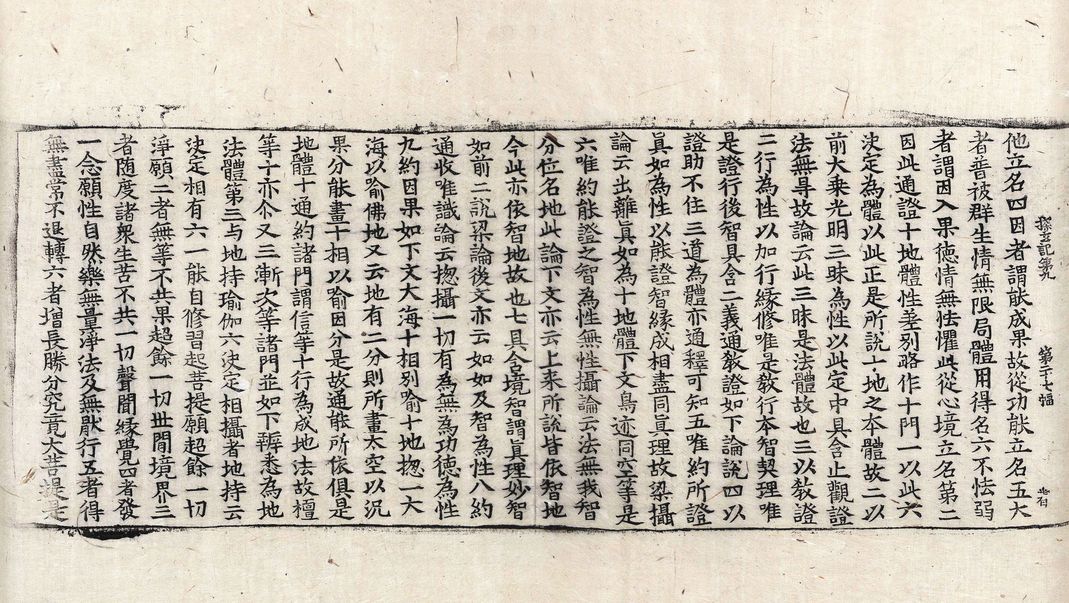 他立名四因者謂猒成果故從功能立名五大
者普被群生情無限局體用得名六不怯弱
探玄記第九 第二十七幅
者謂因入果德情無怯懼此從心境立名第二
因此通證十地體性差别略作十門一以此六
決定為體以此正是所說一地之本體故二以
前大乗光明三昧為性以此定中具含止觀證
法無㝵故論云此三昧是法體故也三以教證
二行為性以加行縁修唯是教行本智契理唯
是證行後智具含二義通教證如下論說四以
證助不住三道為體亦通釋可知五唯約所證
真如為性以能證智縁成相盡同真理故梁攝
論云出離真如為十地體下文鳥迹同空等是
六唯約能證之智為性無性攝論云法無我智
分位名地此論下文亦云上來所說皆依智地
今此亦依智地故也七具含境智謂真理妙智
如前二說梁論後文亦云如如及智為性八約
通收唯識論云揔攝一切有為無為功徳為性
九約因果如下文大海十相别喻十地揔一大
海以喻佛地又云地有二分則所畫太空以况
果分能畫十相以喻因分是故通能所依俱是
地體十通約諸門謂信等十行為成地法故檀
等十亦尒又三漸次等諸門並如下辨悉為地
法體第三与地持瑜伽六決定相攝者地持云
決定相有六一能自修習起菩提願超餘一切
淨願二者無等不共果超餘一切世間境界三
者随度諸衆生苦不共一切聲聞緣覺四者發
一念願性自然樂無量淨法及無猒行五者得
無盡常不退轉六者增長勝分究竟大菩提是